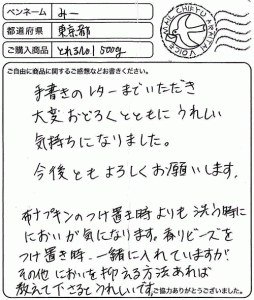 ペンネーム みー
都道府県 東京都
ご購入商品 とれるNo.1 500g
ご自由に商品に関するご感想などお書きください。
手書きのレターまでいただき
大変おどろくとともにうれしい
気持ちになりました。
今後ともよろしくお願いします。
布ナプキンのつけ置き時よりも洗う時に
においが気になります。香りビーズを
つけ置き時、一緒に入れていますが、
その他においを抑える方法あれば
教えて下さるとうれしいです。
ご協力ありがとうございました。